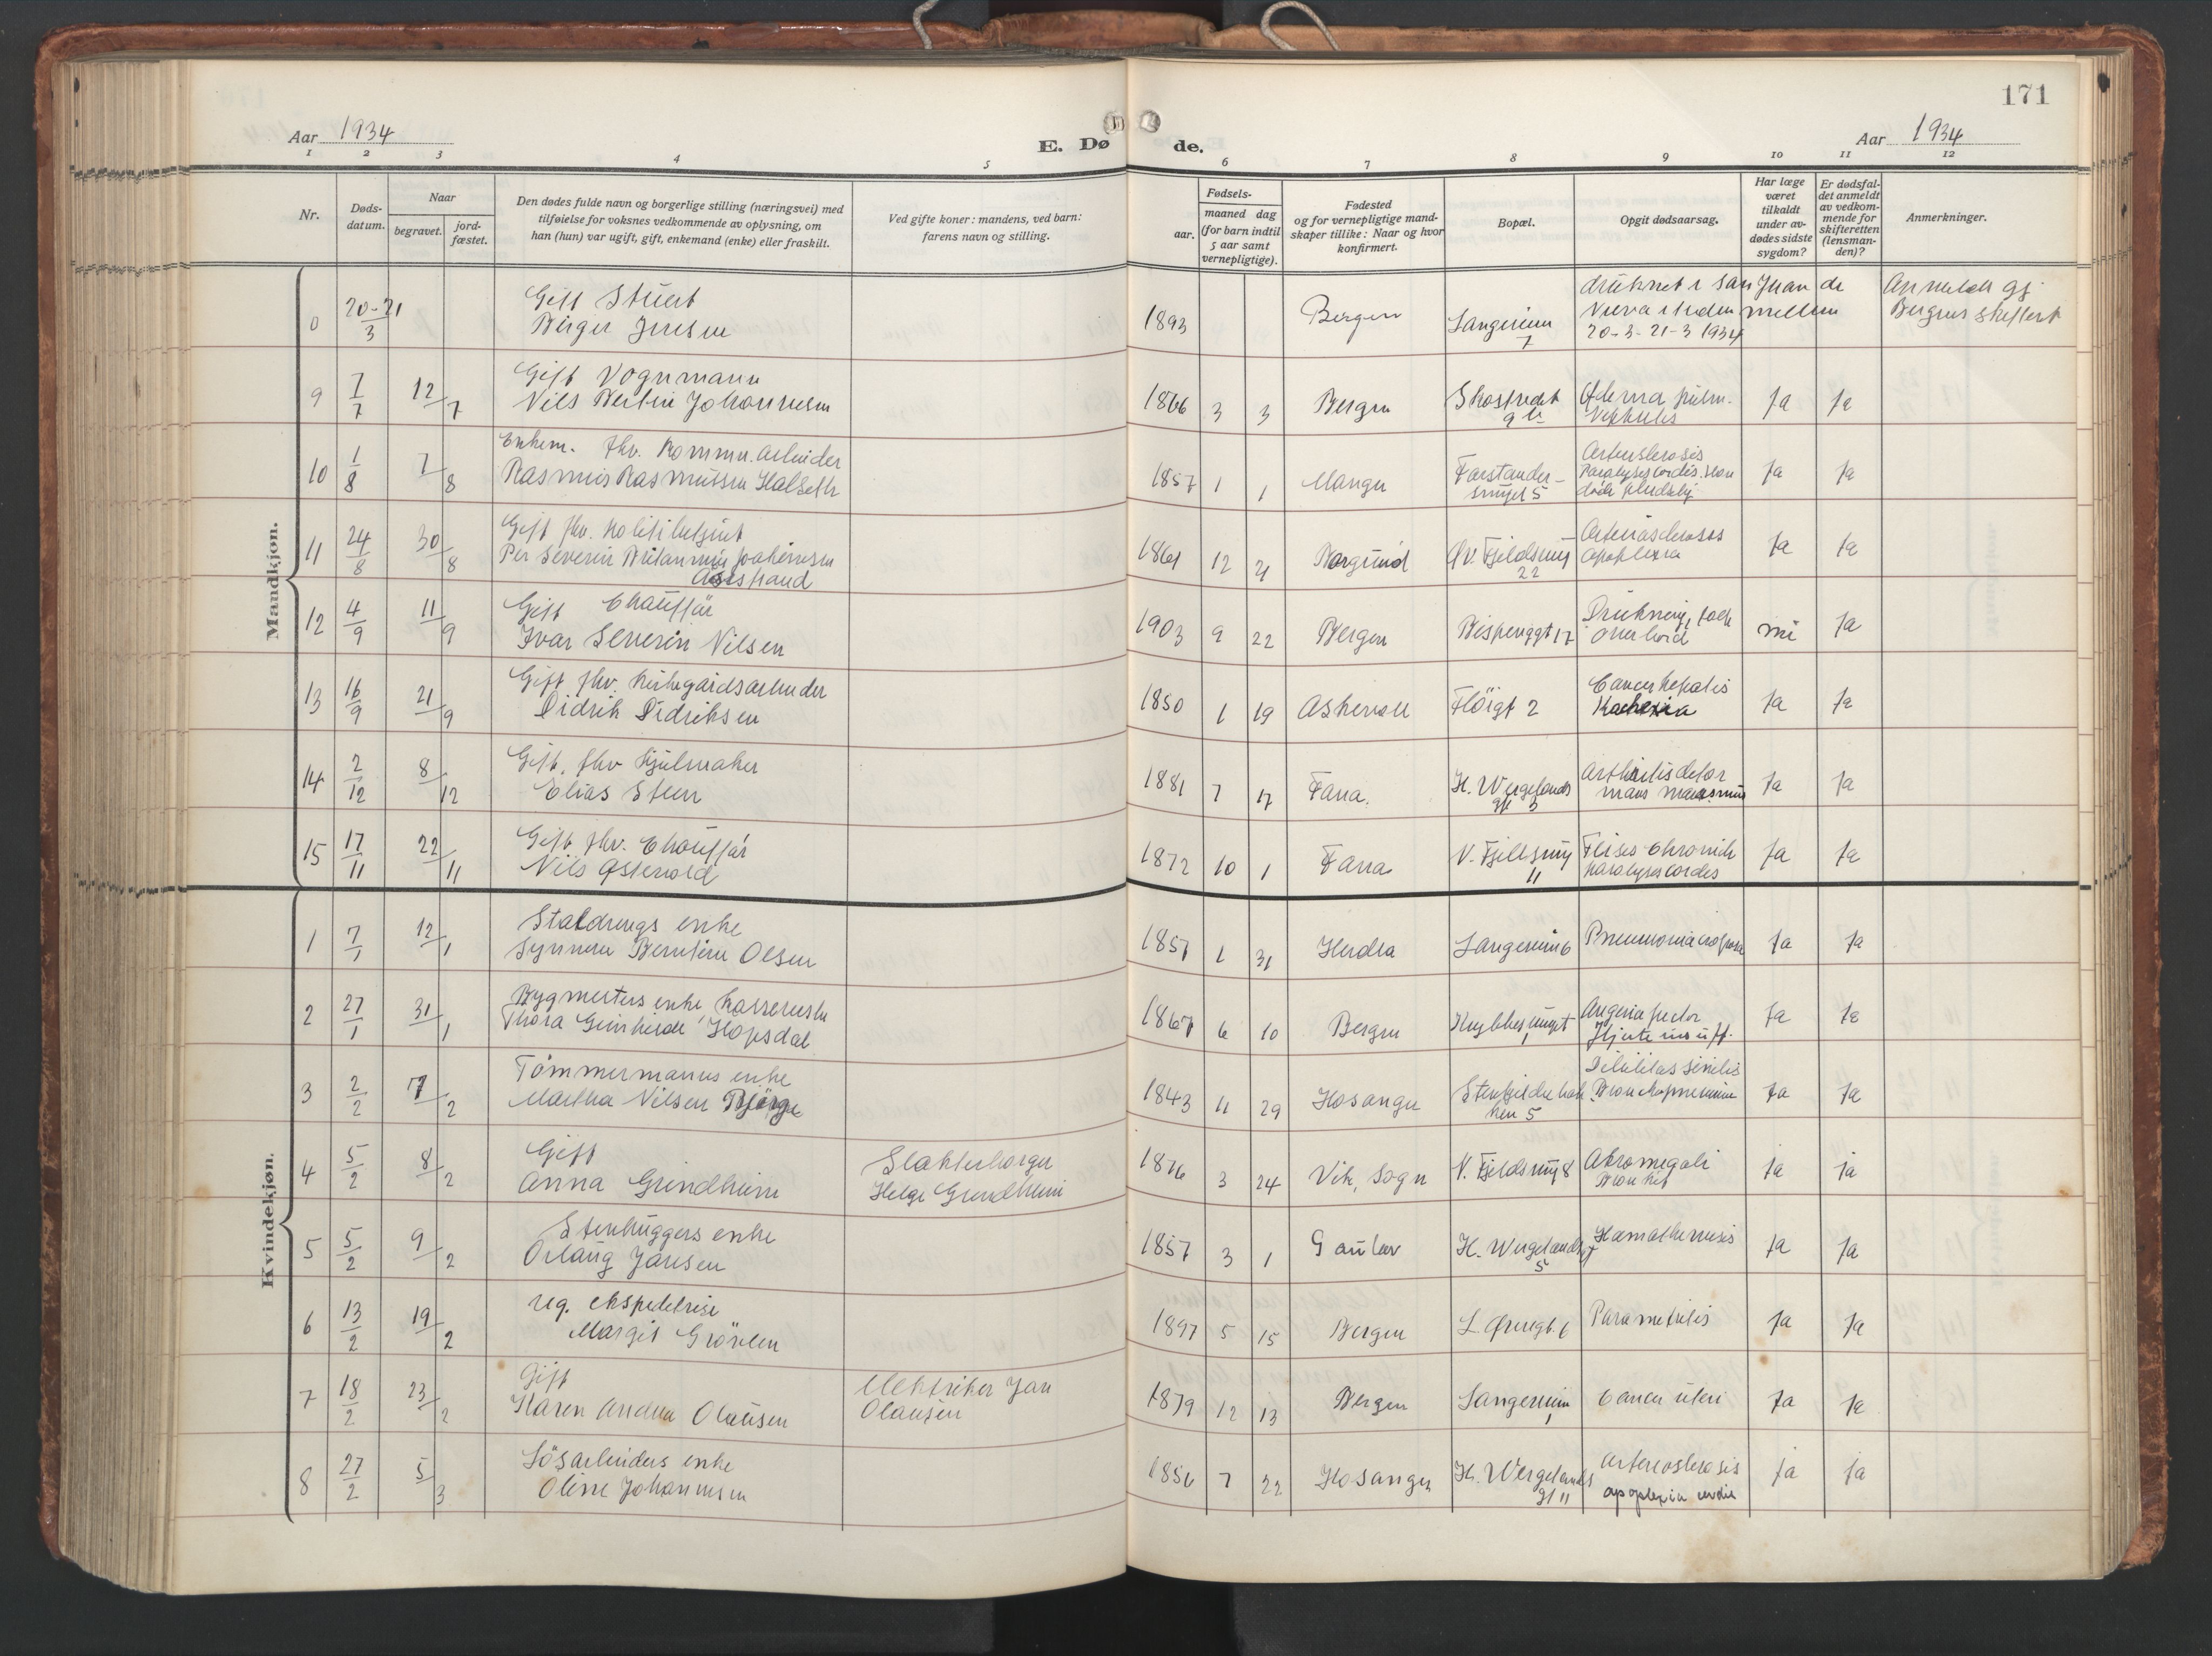 171
Aar 1934
E. Dø de.
Aar 1934
1 2 3 4 5 6 7 8 9 10 11 12
Nr.
Døds-
datum.
Naar
begravet.
jord-
fæstet.
Den dødes fulde navn og borgerlige stilling (næringsvei) med
tilføielse for voksnes vedkommende av oplysning, om
han (hun) var ugift, gift, enkemand (enke) eller fraskilt.
Ved gifte koner: mandens, ved barn:
farens navn og stilling.
Fødsels-
aar.
maaned dag
(for barn indtil
5 aar samt
vernepligtige).
Fødested
og for vernepligtige mand-
skaper tillike: Naar og hvor
konfirmert.
Bopæl.
Opgit dødsaarsag.
Har læge
været
tilkaldt
under av-
dødes sidste
sygdom?
Er dødsfal-
det anmeldt
av vedkom-
mende for
skifteretten
(lensman-
den)?
Anmerkninger.
Mandkjøn.
0 20-21/3 Gift Stuert
Birger Jensen
1893 Bergen 7
druknet i San Juan de
i tiden mellem
20-3-21-3 1934
Bergens skifteret
9 7/7 12/7 Gift Vognmann
Nils Bertin Johannesen
1866 3 3 Bergen Skostredet
Ødema pulm.
Ja Ja
10 1/8 7/8 Enkem. fhv. Kommu. arbeider
Rasmus Rasmussen Halseth
1857 1 1 Manger Forstander-
smuget 5
Arteriosclerosis
Paralysis cordis.
Ja Ja
11 24/8 30/8 Gift fhv. Politibetjent
Per Severin
1861 12 21 Borgund Øv. Fjeldsmug
22
apoplexia
Ja Ja
12 4/9 11/9 Gift Chauffør
Ivar Severin Nilsen
1903 9 22 Bergen Bispenggt 17
Drukning, falt
overbord
nei Ja
13 16/9 21/9 Gift fhv. kirkegårdsarbeider
Didrik Didriksen
1850 1 19 Askevoll Fløigt 2
Cancer hepatis
Kachexia
Ja Ja
14 2/12 8/12 Gift. fhv Hjulmaker
Elias Steen
1881 7 17 Fana. H. Wergelands
gt 3
Arthritis defor
mans marasmus
Ja Ja
15 17/11 22/11 Gift fhv. Chauffør
Nils Østervold
1872 10 1 Fana V. Fjeldsmug
11
paralysis cordis
Ja Ja
Kvindekjøn.
1 7/1 12/1 Staldrengs enke
Synneva Berntine Olsen
1857 1 31 Herdla 6
Pneumonia
Ja Ja
2 27/1 31/1 Bygmesters enke,
Thora Hopsdal
1867 6 10 Bergen
Angina pector
Hjerte insuff.
Ja Ja
3 2/2 7/2 Tømmermanns enke
Martha Nilsen
1843 11 29 Hosanger
ken 5
Debilitas senilis
Ja Ja
4 5/2 8/2 Gift
Anna Grindheim
Slakterborger
Helge Grindheim
1876 3 24 Vik, Sogn V. Fjeldsmug 8
Akromegali
Bronkit
Ja ja
5 5/2 9/2 Stenhuggers enke
Orlaug Jansen
1857 3 1 Gaular H. Wergelandsgt
5
Hamathemesis
Ja Ja
6 13/2 19/2 ug. ekspeditrise
Margit Grøvlen
1897 5 15 Bergen L. Øvregt. 6
Parametritis
Ja Ja
7 18/2 23/2 Gift
Karen Andrea Olausen
Elektriker Jan
Olausen
1879 12 13 Bergen
Cancer uteri
Ja Ja
8 27/2 5/3 Løsarbeiders enke
Oline Johannesen
1856 7 22 Hosanger H. Wergelands
gt 11
Arteriosclerosis
apoplexia
Ja Ja